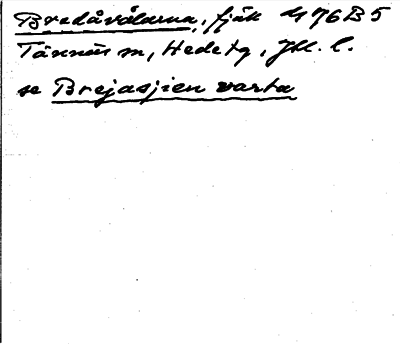 Bredåvålarna, fjäll 476B5
Tännäs sn, Hede tg, Jtl. l.
se Brejasjien varta